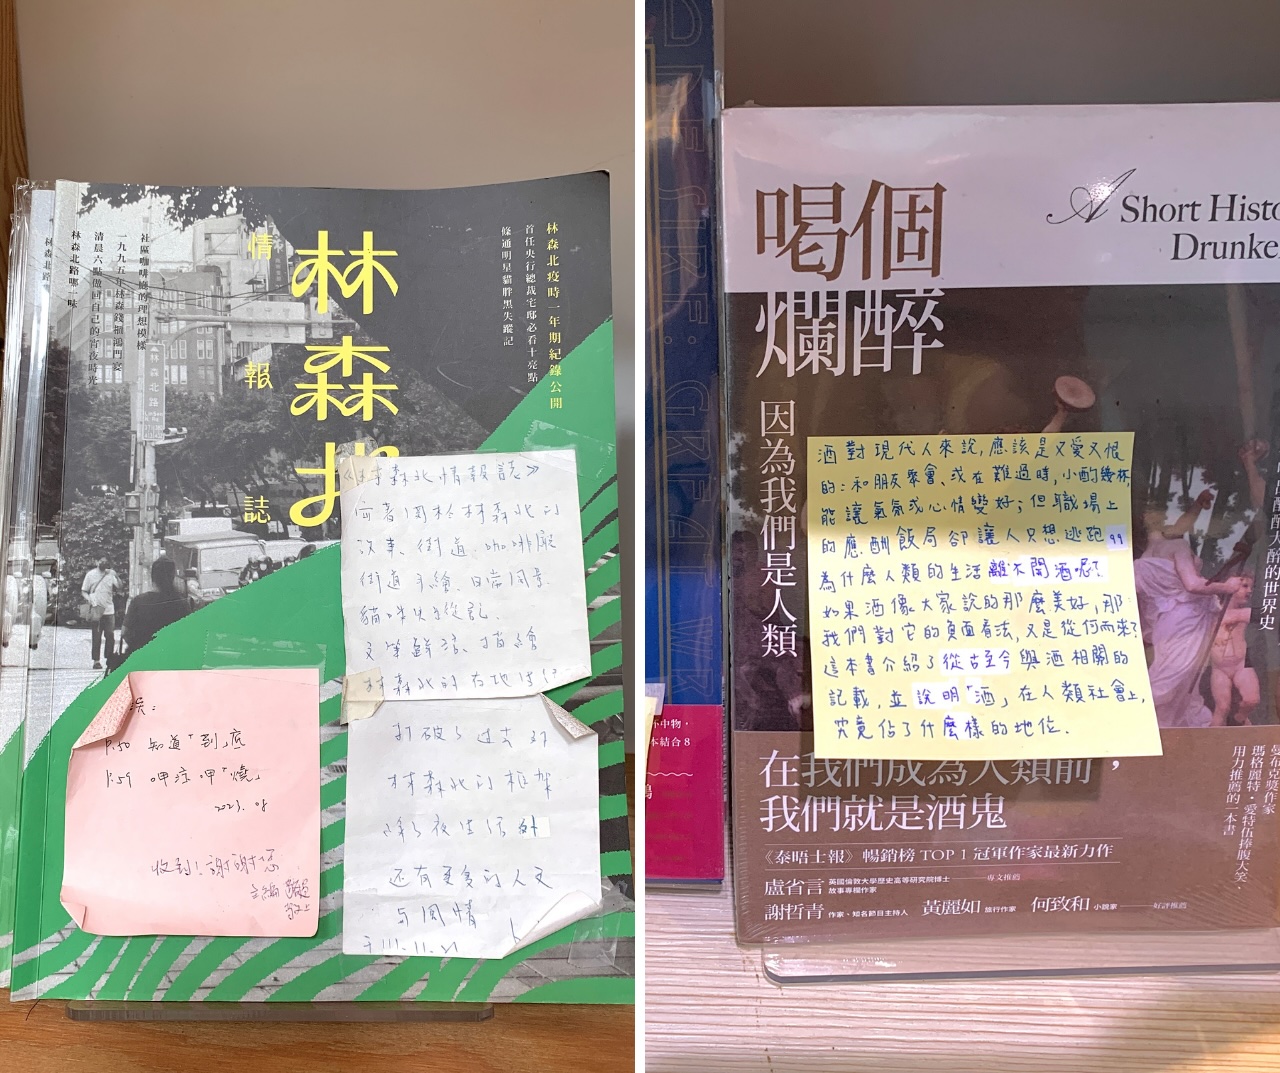 林森北
情報誌
林森北疫時一年期紀錄公開
首任央行總裁宅邸必看十亮點
條通明星貓胖黑失蹤記
社區咖啡廳的理想模樣
一九九五年林森錢櫃鴻門宴
清晨六點做回自己的宵夜時光
林森北路哪一味
林森北路
林森北路
《林森北情報誌》
寫著關於林森北的
故事、街道、咖啡廳
街道手繪、日常風景
貓咪失蹤記.
文筆鮮活、描繪
林森北的在地
打破了過去對
林森北的框架
除了夜生活外
還有更多的人文
與風情
111.11.21
誤:
P.50 知道「到」底
P.59 呷泣呷「燒」
2023. 08
收到!謝謝您
主編
喝個
爛醉
A Short Histo
Drunke
因為我們是人類
酒對現代人來說,應該是又愛又恨
的:和朋友聚會、或在難過時,小酌幾杯,
能讓氣氛或心情變好;但職場上
的應酬飯局卻讓人只想逃跑
為什麼人類的生活離不開酒呢?
如果酒像大家說的那麼美好,那
我們對它的負面看法,又是從何而來?
這本書介紹了從古至今與酒相關的
記載,並說明「酒」在人類社會上,
究竟佔了什麼樣的地位.
酊酩大醉的世界史
在我們成為人類前,
我們就是酒鬼
《泰晤士報》暢銷榜 TOP 1 冠軍作家最新力作
盧省言 英國倫敦大學歷史高等研究院博士 故事專欄作家 ——專文推薦
謝哲青 作家、知名節目主持人 黃麗如 旅行作家 何致和 小說家 ——好評推薦
曼布克獎作家
瑪格麗特・愛特伍捧腹大笑、
用力推薦的一本書
本結合8